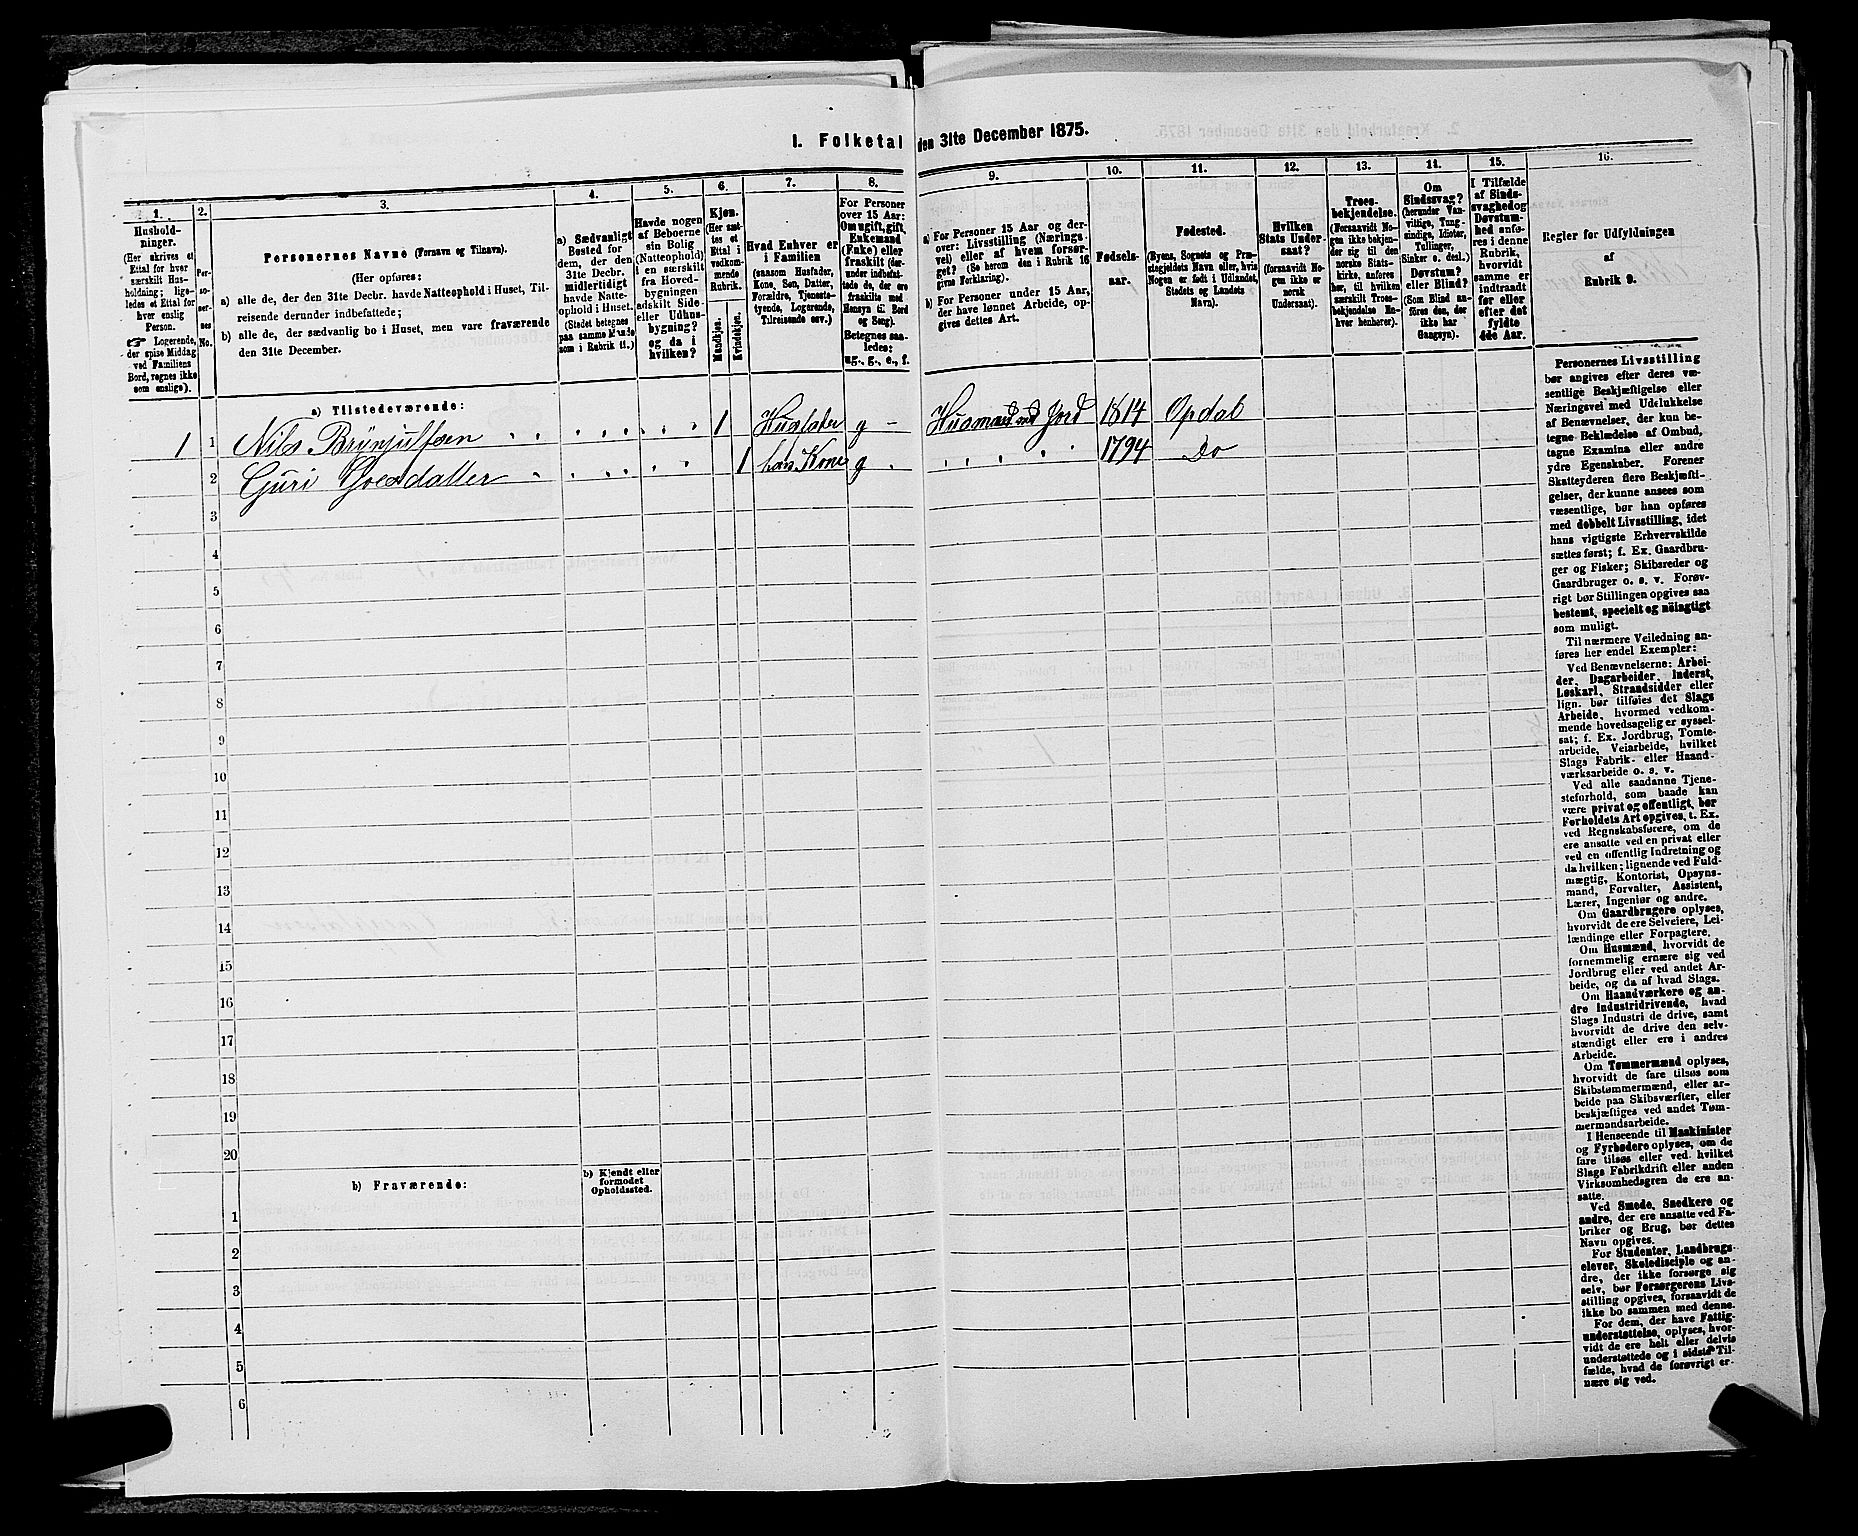 I. Folketal den 31te December 1875.
1.
2.
3.
4.
5.
6.
7.
8.
9.
10.
11.
12.
13.
14.
15.
16.
Hushold-
ninger.
(Her skrives et
Ettal for hver
særskilt Hus-
holdning; lige-
ledes et Ettal for
hver enslig
Person.
☞ Logerende,
der spise Middag
ved Familiens
Bord, regnes ikke
som enslige).
Per-
so-
ner-
nes
No.
Personernes Navne (Fornavn og Tilnavn).
(Her opføres:
a) alle de, der den 31te Decbr. havde Natteophold i Huset, Til-
reisende derunder indbefattede;
b) alle de, der sædvanlig bo i Huset, men vare fraværende
den 31te December.
a) Sædvanligt
Bosted for
dem, der den
31te Decbr.
midlertidigt
havde Natte-
ophold i Huset.
(Stedet betegnes
paa samme Maade
som i Rubrik 11.)
Havde nogen
af Beboerne
sin Bolig
(Natteophold)
i en særskilt
fra Hoved-
bygningen
adskilt Side-
eller Udhus-
bygning?
og da i
hvilken?
Kjøn.
(Her sæt-
tes et
Ettal i
vedkom-
mende
Rubrik.
Mandkjøn.
Kvindekjøn.
Hvad Enhver er
i Familien
(saasom Husfader,
Kone, Søn, Datter,
Forældre, Tjeneste-
tyende, Logerende,
Tilreisende osv.)
For Personer
over 15 Aar:
Om ugift, gift,
Enkemand
(Enke) eller
fraskilt (der-
under indbefat-
tede de, der ere
fraskilte med
Hensyn til Bord
og Seng).
Betegnes saa-
ledes:
ug., g., e., f.
a) For Personer 15 Aar og der-
over: Livsstilling (Nærings-
vei) eller af hvem forsør-
get? (Se herom den i Rubrik 16
givne Forklaring).
b) For Personer under 15 Aar,
der have lønnet Arbeide, op-
gives dettes Art.
Fødsels-
aar.
Fødested.
(Byens, Sognets og Præ-
stegjeldets Navn eller, hvis
Nogen er født i Udlandet,
Stedets og Landets
Navn).
Hvilken
Stats Under-
saat?
(forsaavidt No-
gen ikke er
norsk
Undersaat).
Troes-
bekjendelse.
(Forsaavidt No-
gen ikke bekjen-
der sig til den
norske Stats-
kirke, anføres
her, til hvilken
særskilt Troes-
bekjendelse En-
hver henhører).
Om
Sindssvag?
(herunder Van-
vittige, Tung-
sindige, Idioter,
Tullinger,
Sinker o. desl.)
Døvstum?
eller Blind?
(Som Blind an-
føres den, der
ikke har
Gangsyn).
I Tilfælde
af Sinds-
svaghed og
Døvstum-
hed anfø-
res i denne
Rubrik,
hvorvidt
samme er
indtraadt
før eller
efter det
fyldte
4de Aar.
Regler for Udfyldningen
af
Rubrik 9.
a) Tilstedeværende:
1 1 Nils Brynjulfsen 1 Husfader g Husmand med Jord 1814 Opdal
2 Guri Goesdatter 1 hans Kone g 1794 Do
3
4
5
6
7
8
9
10
11
12
13
14
15
16
17
18
19
20
b) Fraværende:
b) Kjendt eller
formodet
Opholdssted.
1
2
3
4
5
6
Personernes Livsstilling
bør angives efter deres væ-
sentlige Beskjæftigelse eller
Næringsvei med Udelukkelse
af Benævnelser, der kun be-
tegne Beklædelse af Ombud,
tagne Examina eller andre
ydre Egenskaber. Forener
Skatteyderen flere Beskjæfti-
gelser, der kunne ansees som
væsentlige, bør han opføres
med dobbelt Livsstilling, idet
hans vigtigste Erhvervskilde
sættes først; f. Ex. Gaardbru-
ger og Fisker; Skibsreder og
Gaardbruger o. s. v. Forøv-
rigt bør Stillingen opgives saa
bestemt, specielt og nöiagtigt
som muligt.
Til nærmere Veiledning an-
føres her endel Exempler:
Ved Benævnelserne: Arbei-
der, Dagarbeider, Inderst,
Løskarl, Strandsidder eller
lign. bør tilføies det Slags
Arbeide, hvormed vedkom-
mende hovedsagelig er syssel-
sat; f. Ex. Jordbrug, Tomte-
arbeide, Veiarbeide, hvilket
Slags Fabrik- eller Haand-
værksarbeide o. s. v.
Ved alle saadanne Tjene-
steforhold, som baade kan
være privat og offentligt, bør
Forholdets Art opgives, t. Ex.
ved Regnskabsførere, om de
ere ansatte ved en privat eller
ved en offentlig Indretning og
da hvilken; lignende ved Fuld-
mægtig, Kontorist, Opsyns-
mand, Forvalter, Assistent,
Lærer, Ingeniør og andre.
Om Gaardbrugere oplyses,
hvorvidt de ere Selveiere, Lei-
lændinge eller Forpagtere.
Om Husmænd, hvorvidt de
fornemmelig ernære sig ved
Jordbrug eller ved andet Ar-
beide, og da af hvad Slags.
Om Haandværkere og an-
dre Industridrivende, hvad
Slags Industri de drive, samt
hvorvidt de drive den selv-
stændigt eller ere i andres
Arbeide.
Om Tømmermænd oplyses,
hvorvidt de fare tilsøs som
Skibstømmermænd, eller ar-
beide paa Skibsværfter, eller
beskjæftiges ved andet Tøm-
mermandsarbeide.
I Henseende til Maskinister
og Fyrbødere oplyses, om de
fare tilsøs eller ved hvilket
Slags Fabrikdrift eller anden
Virksomhedsgren de ere an-
satte.
Ved Smede, Snedkere og
andre, der ere ansatte ved Fa-
briker og Brug, bør dettes
Navn opgives.
For Studenter, Landbrugs-
elever, Skoledisciple og an-
dre, der ikke forsørge sig
selv, bør Forsørgerens Livs-
stilling opgives, forsaavidt de
ikke bo sammen med denne.
For dem, der have Fattig-
understøttelse, oplyses, hvor-
vidt de ere helt eller delvis
understøttede og i sidste Til-
fælde, hvad de forøvrigt er-
nære sig ved.